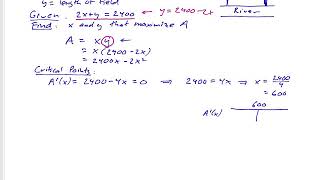 y = length of field
Given: 2x+y = 2400 ← y = 2400-2x
River
Find: x and y that maximize A
A = x y ←
= x(2400-2x)
= 2400x-2x²
Critical Points:
A'(x) = 2400-4x = 0 ⇒ 2400 = 4x ⇒ x = 2400/4
= 600
600
A'(x)